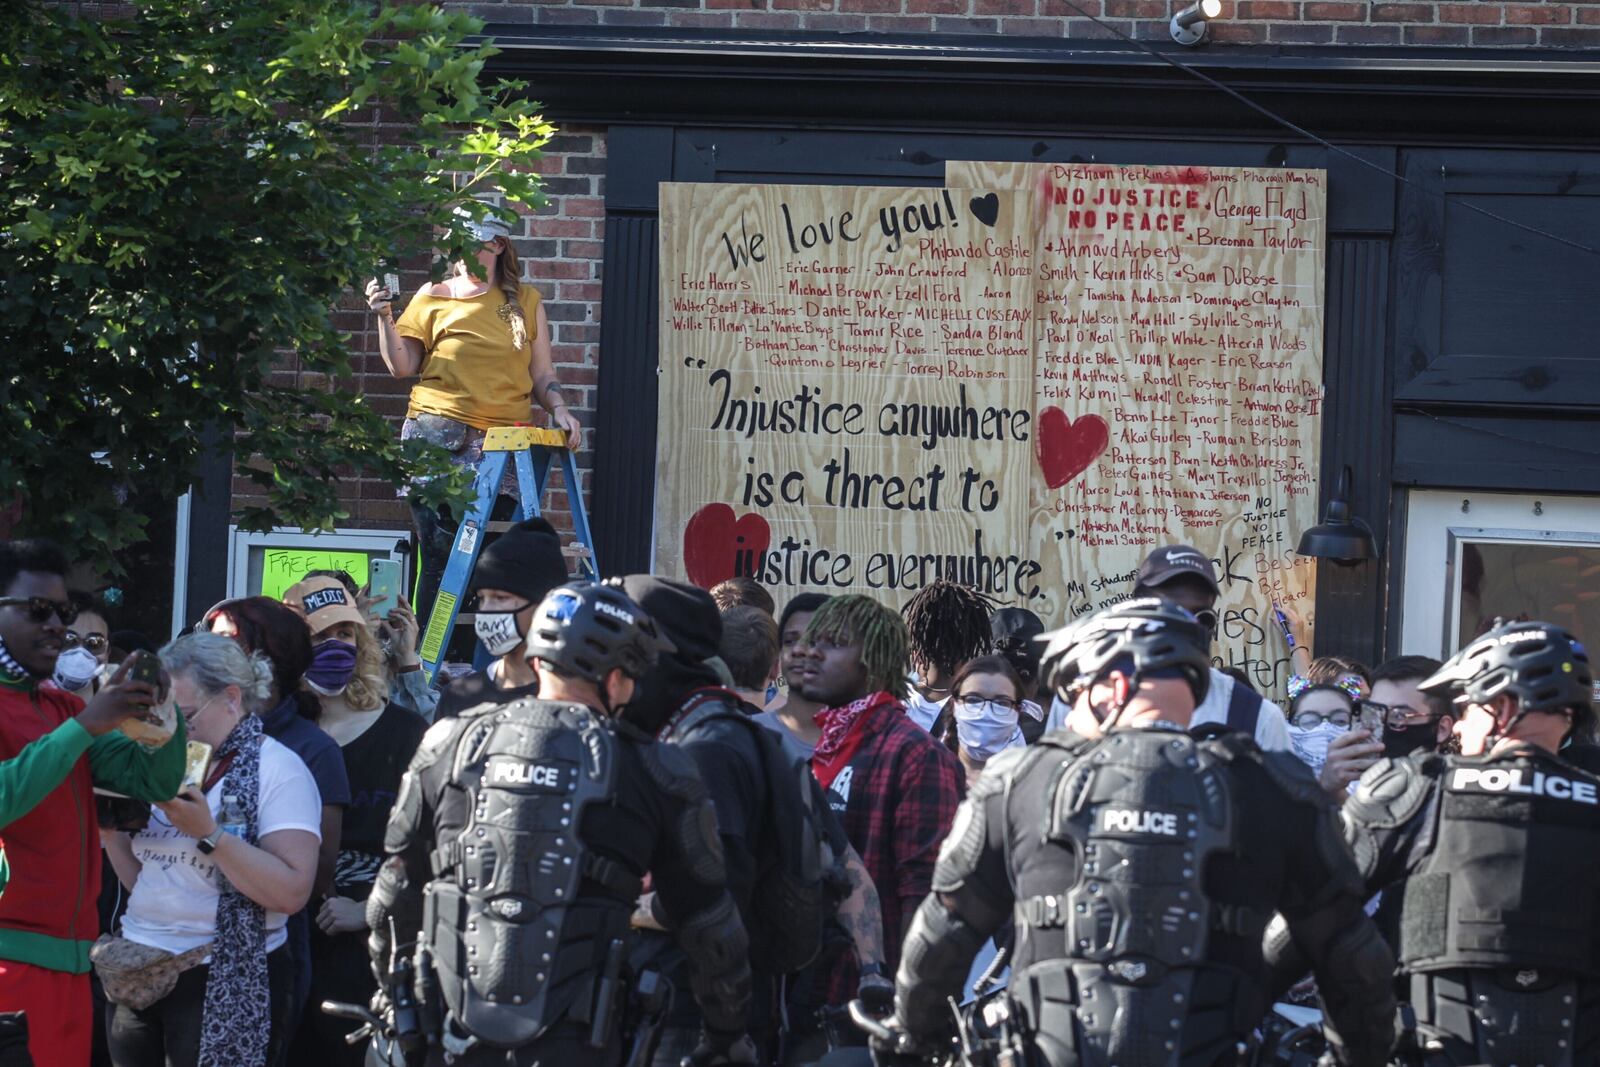 We love you!
Philando Castile
- Eric Garner - John Crawford - Alonzo
- Eric Harris
- Michael Brown - Ezell Ford - Aaron
Walter Scott - Eddie Jones - Dante Parker - MICHELLE CUSSEAUX
- Willie Tillman - La'Vante Biggs - Tamir Rice - Sandra Bland
- Botham Jean - Christopher Davis - Terence Crutcher
- Quintonio Legrier - Torrey Robinson
"Injustice anywhere
is a threat to
justice everywhere."
- Dyzhawn Perkins - Asshams Pharoah Manley
NO JUSTICE
NO PEACE
George Floyd
Breonna Taylor
Ahmaud Arbery
Smith - Kevin Hicks
Sam DuBose
Bailey - Tanisha Anderson - Dominique Clayton
- Randy Nelson - Mya Hall - Sylville Smith
- Paul O'Neal - Phillip White - Alteria Woods
- Freddie Blue - INDIA Kager - Eric Reason
- Kevin Matthews - Ronell Foster - Brian Keith Day
- Felix Kumi - Wendell Celestine - Antwon Rose II
- Benni Lee Tignor - Freddie Blue
- Akai Gurley - Rumain Brisbon
- Patterson Brown - Keith Childress Jr.
- Peter Gaines - Mary Truxillo - Joseph
Mann
- Marco Loud - Atatiana Jefferson
- Christopher McCorvey - Demarcus
Semer
- Natasha McKenna
- Michael Sabbie
NO
JUSTICE
NO
PEACE
Be Seen
Be
Heard
My students
lives matter
FREE
MEDIC
CAN'T
POLICE
POLICE
POLICE
POLICE
POLICE